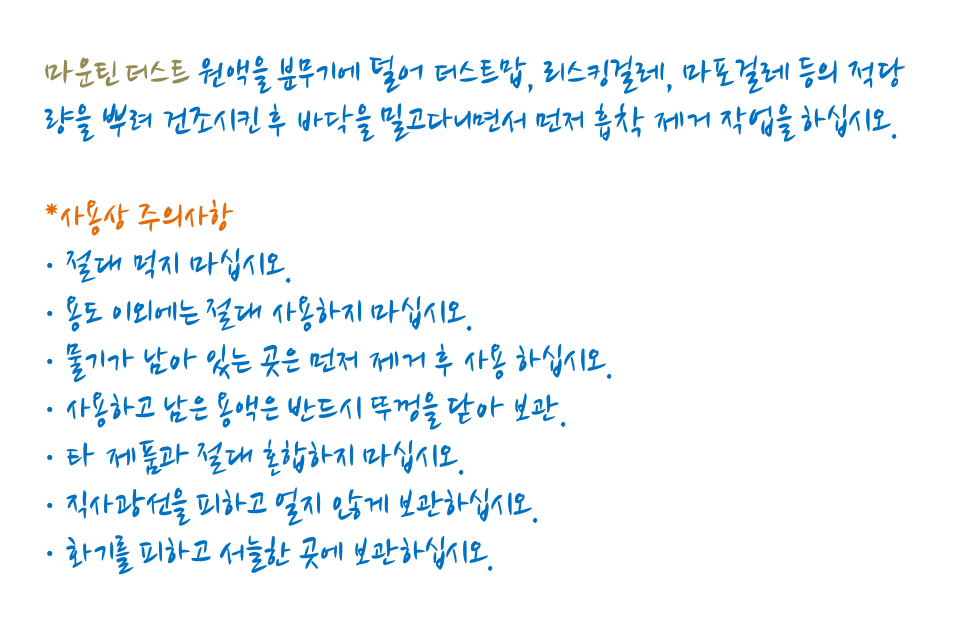 마운틴 더스트 원액을 분무기에 덜어 더스트맙, 리스킹걸레, 마포걸레 등의 적당
량을 뿌려 건조시킨 후 바닥을 밀고다니면서 먼저 흡착 제거 작업을 하십시오.
*사용상 주의사항
• 절대 먹지 마십시오.
• 용도 이외에는 절대 사용하지 마십시오.
• 물기가 남아 있는 곳은 먼저 제거 후 사용 하십시오.
• 사용하고 남은 용액은 반드시 뚜껑을 닫아 보관.
• 타 제품과 절대 혼합하지 마십시오.
• 직사광선을 피하고 얼지 않게 보관하십시오.
• 화기를 피하고 서늘한 곳에 보관하십시오.